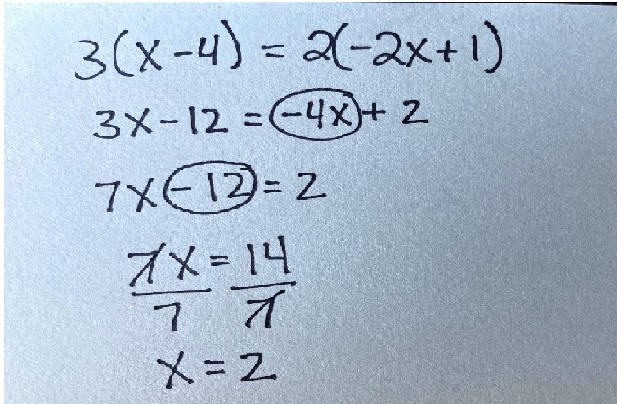 3(x-4) = 2(-2x+1)
3x-12 = -4x + 2
7x-12 = 2
7x = 14
7 7
x = 2